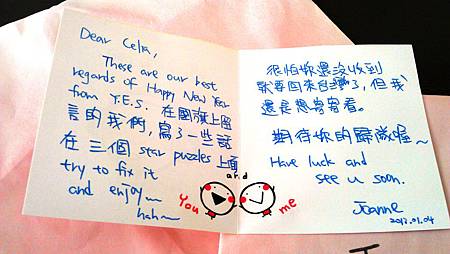 Dear Celia,
These are our best
regards of Happy New Year
from Y.E.S. 在國旗上留
言的我們，寫了一些話
在三個 star puzzles 上面
try to fix it
and enjoy~
hah~
很怕妳還沒收到
就要回來台灣了，但我
還是想寄寄看。
期待妳的喔~
Have luck and
see u soon.
Joanne
2013.01.04
You and me